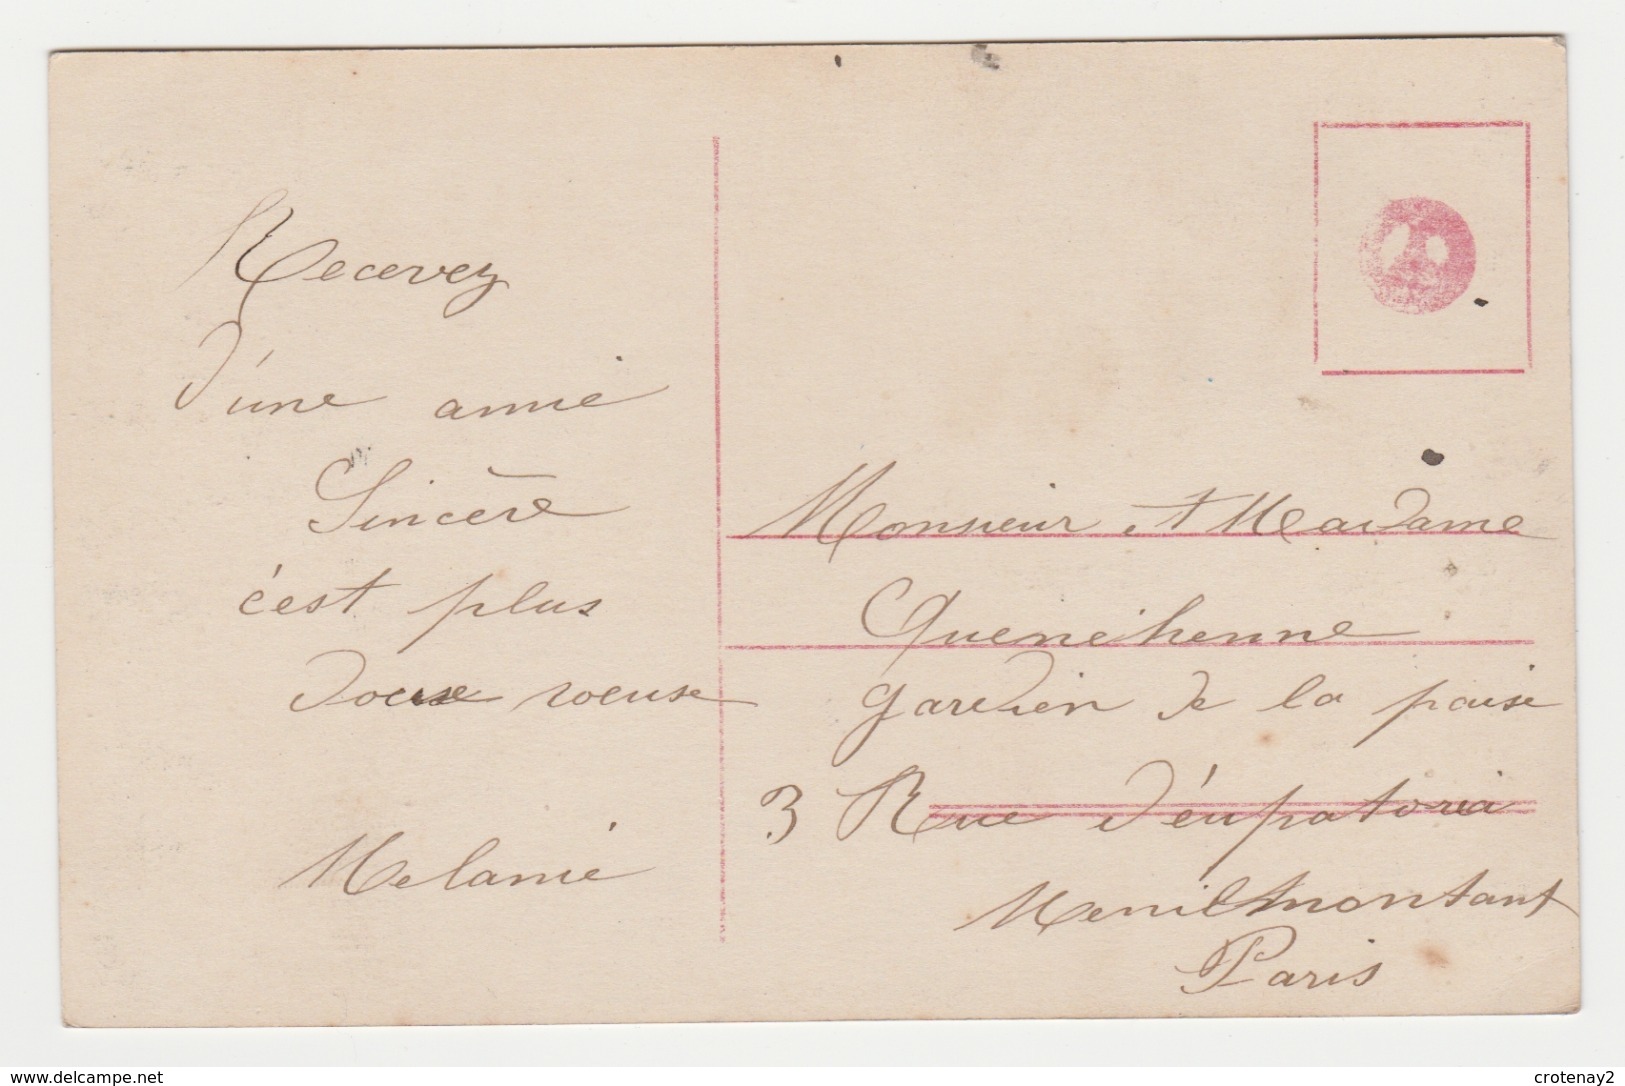 Recevez
d'une amie
Sincère
c'est plus
douse voeuse
Melanie
20
Monsieur et Madame
Quenehenne
gardien de la paise
3 Rue d'éupatoria
Menilmontant
Paris
www.delcampe.net
crotenay2